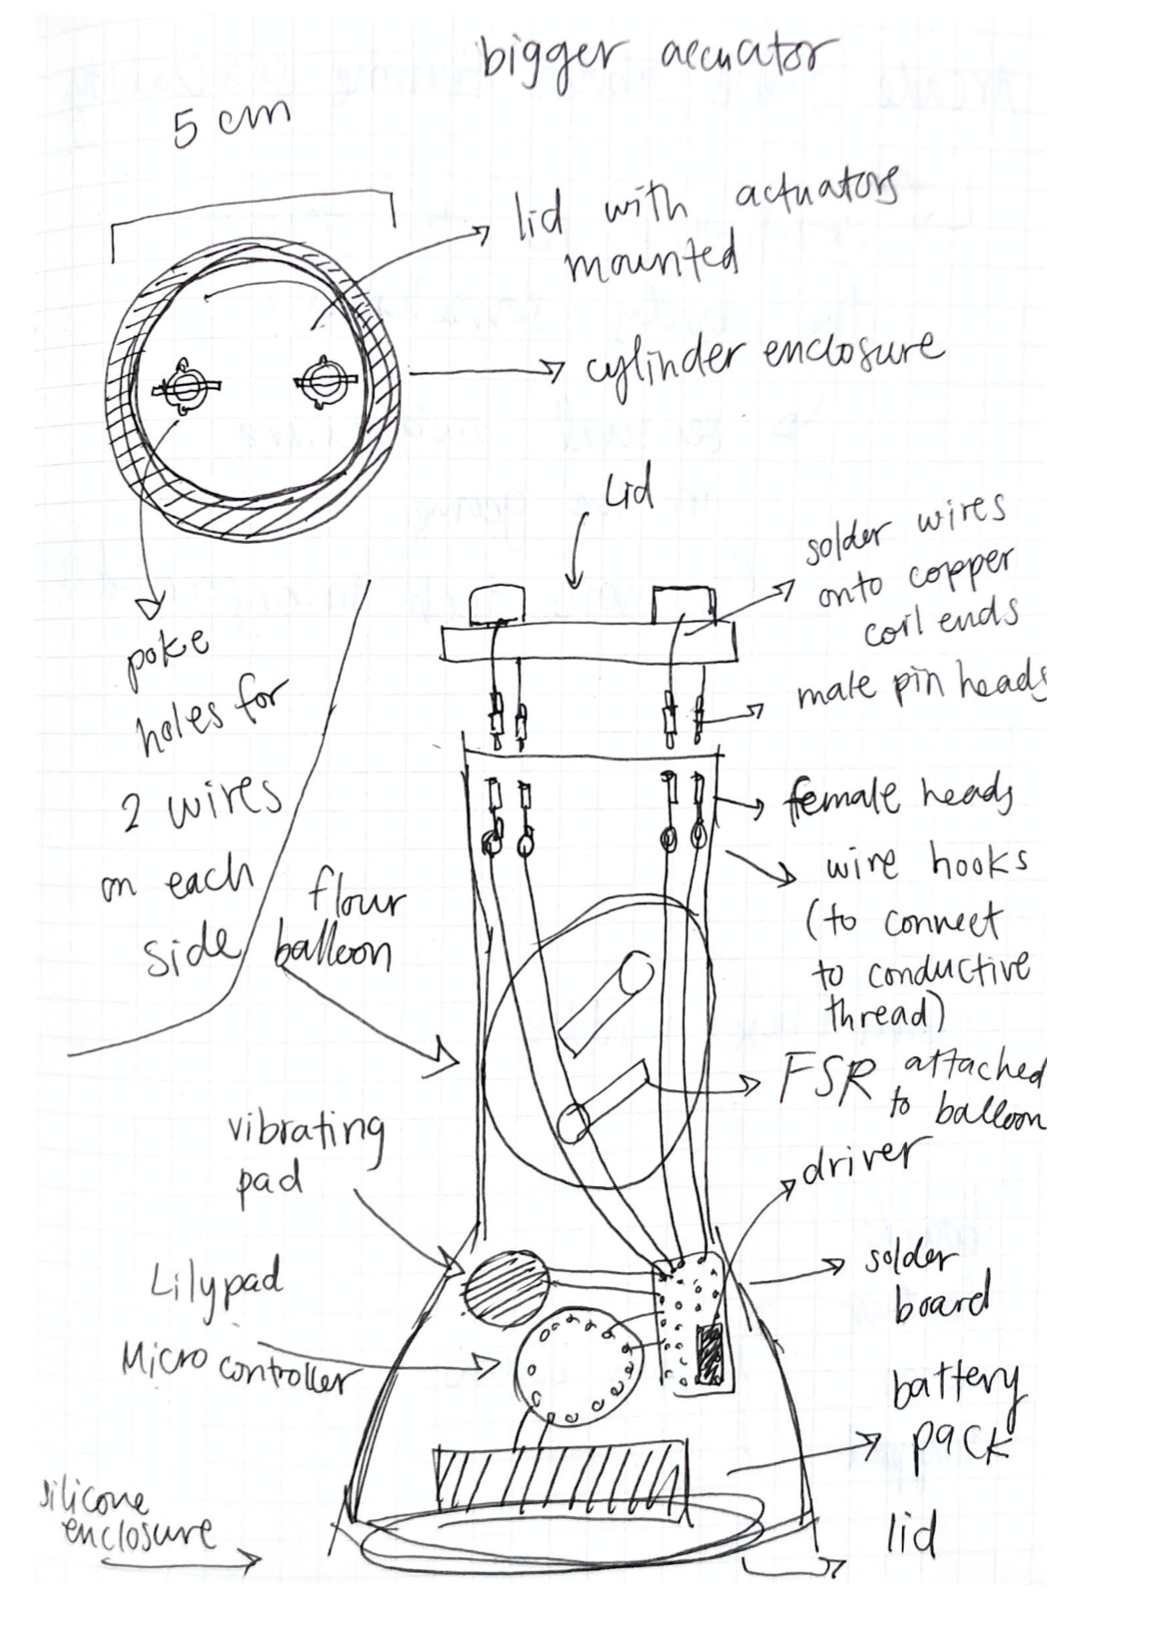 bigger accuator
5 cm
lid with actuators
mounted
cylinder enclosure
Lid
solder wires
onto copper
coil ends
male pin heads
poke
holes for
2 wires
on each
side
female heads
wire hooks
(to connect
to conductive
thread)
flour
balloon
FSR attached
to balloon
vibrating
pad
driver
solder
board
Lilypad
Micro controller
battery
pack
silicone
enclosure
lid